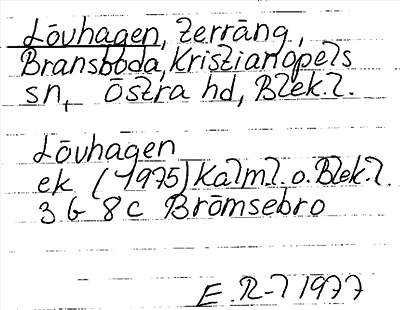 Lövhagen, terräng,
Bransboda, Kristianopels
sn, Östra hd, Blek.l.
Lövhagen
ek (1975) Kalml. o. Blek.l.
3 G 8 c Brömsebro
E. R-l 1977